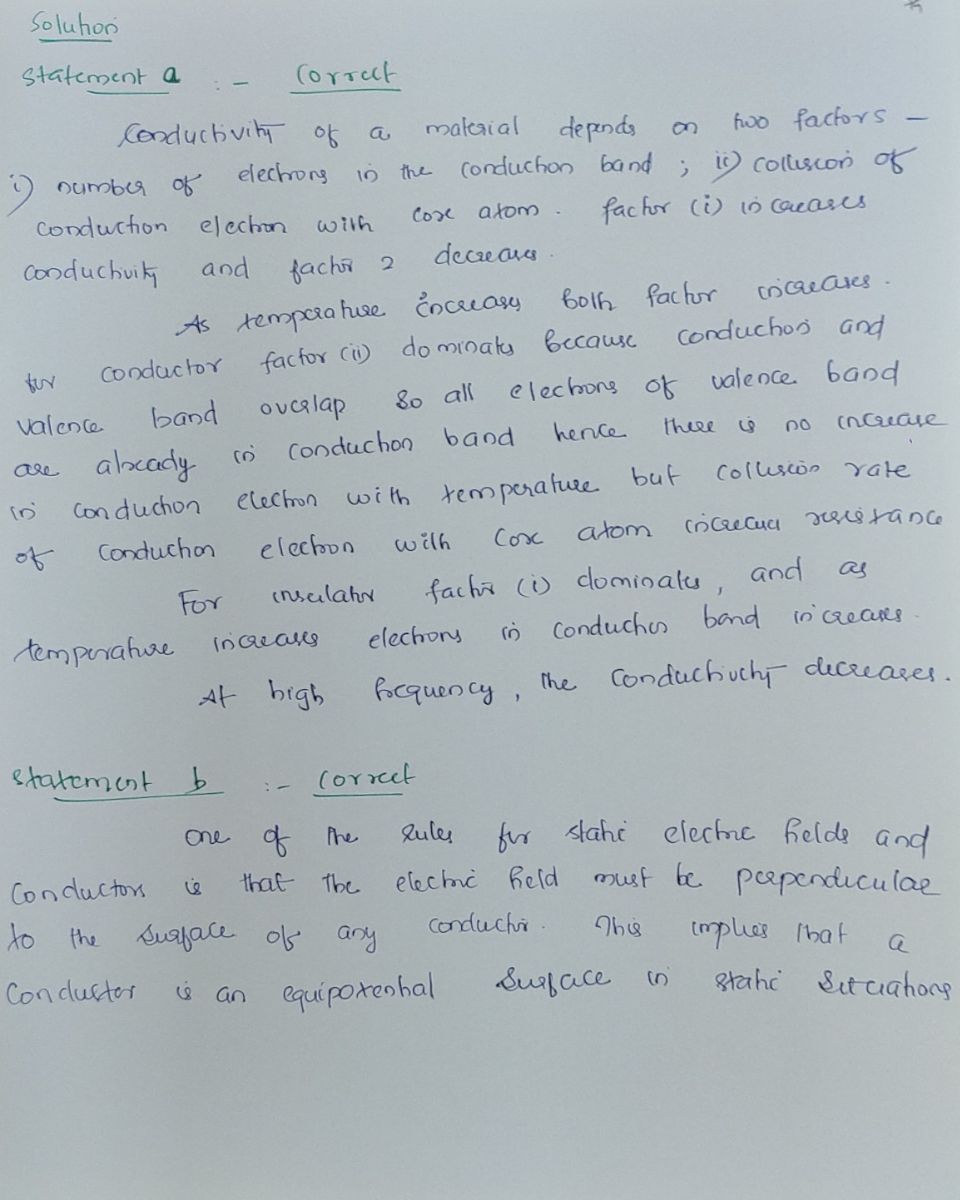 Solution
Statement a :- Correct
Conductivity of a material depends on two factors –
i) number of electrons in the conduction band ; ii) collusion of
conduction electron with core atom . factor (i) increases
conductivity and factor 2 decreases .
As temperature increases both factor increases .
for conductor factor (ii) dominates because conduction and
valence band overlap so all electrons of valence band
are already in conduction band hence there is no increase
in conduction electron with temperature but collusion rate
of conduction electron with core atom increases resistance
For insulator factor (i) dominates , and as
temperature increases electrons in conduction band increases .
At high frequency , the conductivity decreases .
Statement b :- Correct
One of the rules for static electric fields and
Conductors is that the electric field must be perpendicular
to the surface of any conductor . This implies that a
Conductor is an equipotential surface in static situations